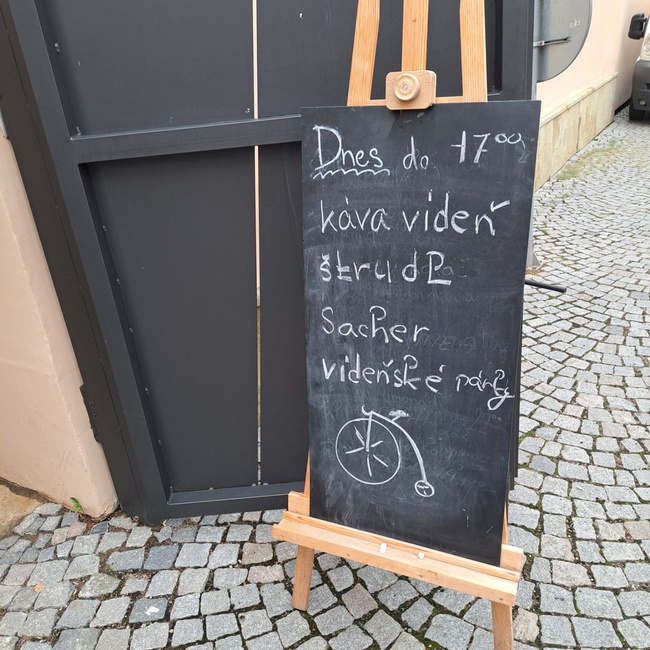 Dnes do 17⁰⁰
káva videň
štrudl
Sacher
videňské párky